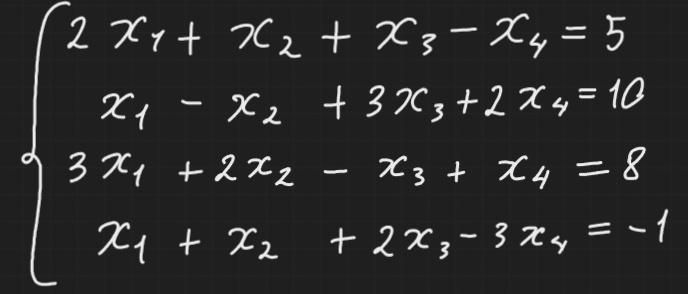 2x₁ + x₂ + x₃ - x₄ = 5
x₁ - x₂ + 3x₃ + 2x₄ = 10
3x₁ + 2x₂ - x₃ + x₄ = 8
x₁ + x₂ + 2x₃ - 3x₄ = -1